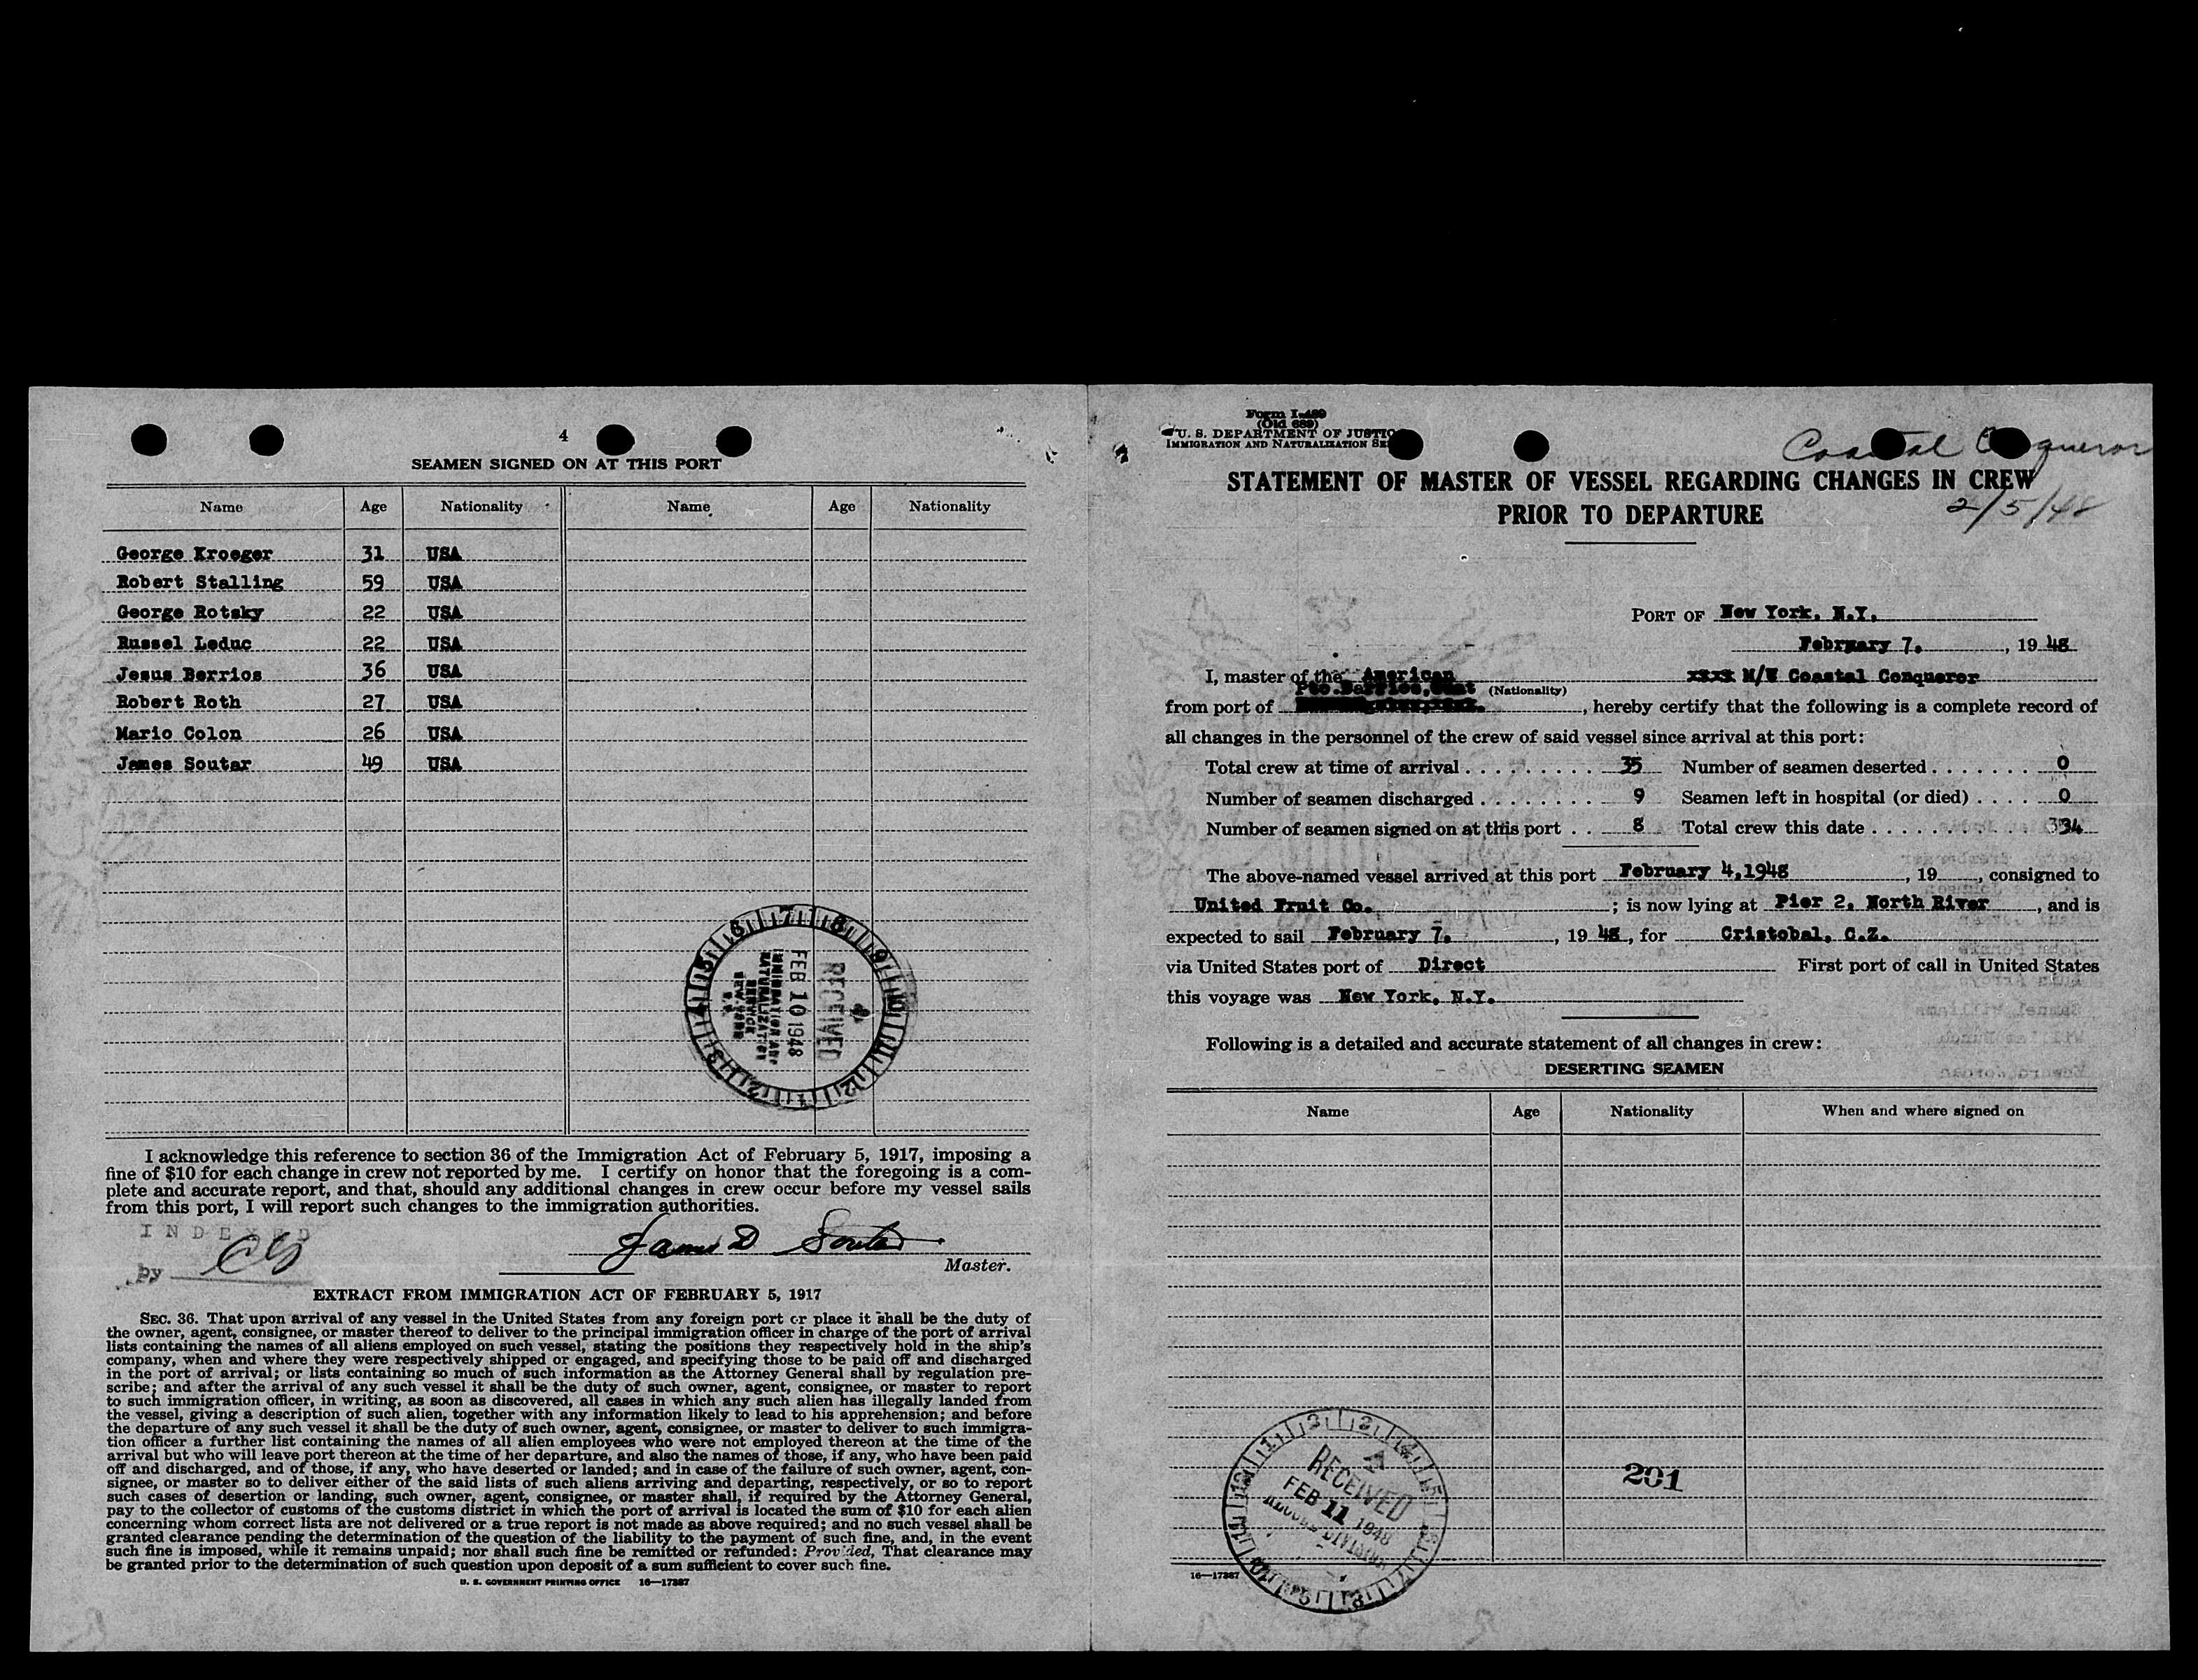 4
SEAMEN SIGNED ON AT THIS PORT
Name Age Nationality Name Age Nationality
George Kroeger 31 USA
Robert Stalling 59 USA
George Rotsky 22 USA
Russel Leduc 22 USA
Jesus Berrios 36 USA
Robert Roth 27 USA
Mario Colon 26 USA
James Soutar 49 USA
RECEIVED
FEB 10 1948
IMMIGRATION AND
NATURALIZATION
SERVICE
NEW YORK
I acknowledge this reference to section 36 of the Immigration Act of February 5, 1917, imposing a
fine of $10 for each change in crew not reported by me. I certify on honor that the foregoing is a com-
plete and accurate report, and that, should any additional changes in crew occur before my vessel sails
from this port, I will report such changes to the immigration authorities.
INDEXED
by
James D Soutar
Master.
EXTRACT FROM IMMIGRATION ACT OF FEBRUARY 5, 1917
SEC. 36. That upon arrival of any vessel in the United States from any foreign port or place it shall be the duty of
the owner, agent, consignee, or master thereof to deliver to the principal immigration officer in charge of the port of arrival
lists containing the names of all aliens employed on such vessel, stating the positions they respectively hold in the ship's
company, when and where they were respectively shipped or engaged, and specifying those to be paid off and discharged
in the port of arrival; or lists containing so much of such information as the Attorney General shall by regulation pre-
scribe; and after the arrival of any such vessel it shall be the duty of such owner, agent, consignee, or master to report
to such immigration officer, in writing, as soon as discovered, all cases in which any such alien has illegally landed from
the vessel, giving a description of such alien, together with any information likely to lead to his apprehension; and before
the departure of any such vessel it shall be the duty of such owner, agent, consignee, or master to deliver to such immigra-
tion officer a further list containing the names of all alien employees who were not employed thereon at the time of the
arrival but who will leave port thereon at the time of her departure, and also the names of those, if any, who have been paid
off and discharged, and of those, if any, who have deserted or landed; and in case of the failure of such owner, agent, con-
signee, or master so to deliver either of the said lists of such aliens arriving and departing, respectively, or so to report
such cases of desertion or landing, such owner, agent, consignee, or master shall, if required by the Attorney General,
pay to the collector of customs of the customs district in which the port of arrival is located the sum of $10 for each alien
concerning whom correct lists are not delivered or a true report is not made as above required; and no such vessel shall be
granted clearance pending the determination of the question of the liability to the payment of such fine, and, in the event
such fine is imposed, while it remains unpaid; nor shall such fine be remitted or refunded: Provided, That clearance may
be granted prior to the determination of such question upon deposit of a sum sufficient to cover such fine.
U. S. GOVERNMENT PRINTING OFFICE 16—17387
Form I-489
(Old 689)
U. S. DEPARTMENT OF JUSTIC
IMMIGRATION AND NATURALIZATION SE
Coastal Conqueror
2/5/48
STATEMENT OF MASTER OF VESSEL REGARDING CHANGES IN CREW
PRIOR TO DEPARTURE
PORT OF New York, N.Y.
February 7, 19 48
I, master of the American xxxx M/V Coastal Conqueror
Pto.Barrios,Guat (Nationality)
from port of , hereby certify that the following is a complete record of
all changes in the personnel of the crew of said vessel since arrival at this port:
Total crew at time of arrival 35 Number of seamen deserted 0
Number of seamen discharged 9 Seamen left in hospital (or died) 0
Number of seamen signed on at this port 8 Total crew this date 334
The above-named vessel arrived at this port February 4,1948, 19 , consigned to
United Fruit Co. ; is now lying at Pier 2, North River, and is
expected to sail February 7, 19 48, for Cristobal, C.Z.
via United States port of Direct First port of call in United States
this voyage was New York, N.Y.
Following is a detailed and accurate statement of all changes in crew:
DESERTING SEAMEN
Name Age Nationality When and where signed on
201
RECEIVED
FEB 11 1948
RECORD DIVISION
16—17387